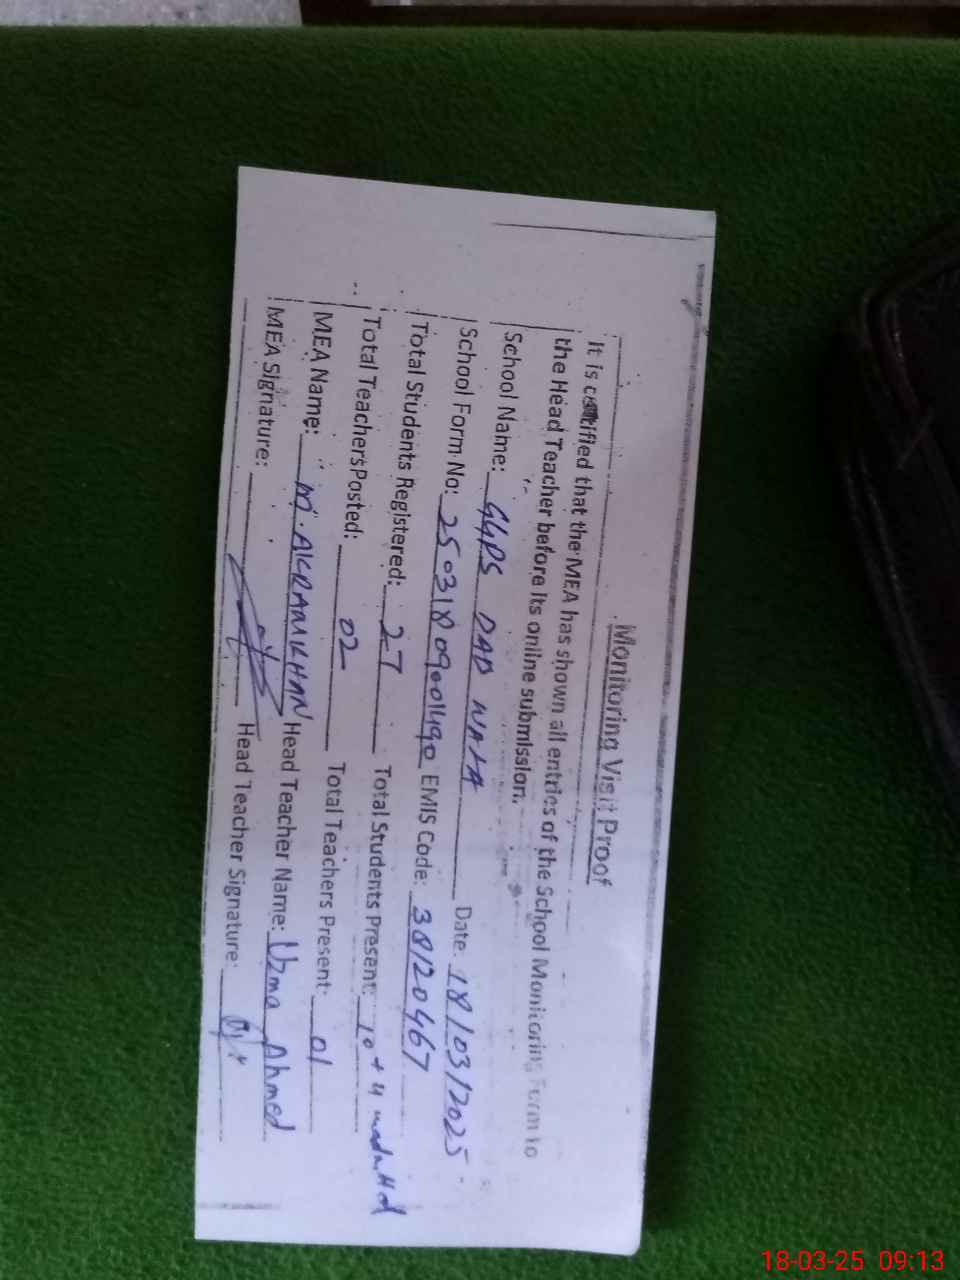 Monitoring Visit Proof
It is certified that the MEA has shown all entries of the School Monitoring Form to
the Head Teacher before its online submission.
School Name: GGPS DAD WALA Date: 18/03/2025
School Form No: 25031809001490 EMIS Code: 38120467
Total Students Registered: 27 Total Students Present: 10+4
Total Teachers Posted: 02 Total Teachers Present: 01
MEA Name: M. AKRAM KHAN Head Teacher Name: Uzma Ahmed
MEA Signature: Head Teacher Signature:
18-03-25 09:13